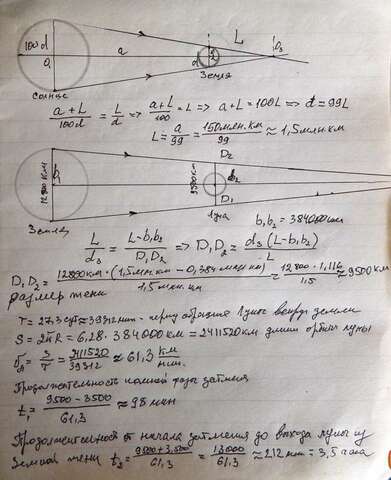 100d
a
L
O₃
O₁
d
O₂
Солнце
Земля
(a+L)/100d = L/d ⇒ (a+L)/100 = L ⇒ a+L = 100L ⇒ d = 99L
L = a/99 = 150 млн.км/99 ≈ 1,5 млн.км
12800 км
D₂
9500 км
D₁
Земля
Луна
b₁b₂ = 384000 км
L/d₃ = (L-b₁b₂)/D₁D₂ ⇒ D₁D₂ = d₃(L-b₁b₂)/L
D₁D₂ = 12800км·(1,5млн.км - 0,384 млн км)/1,5 млн.км ≈ 12800·1,116/1,5 ≈ 9500 км
размер тени
T = 27,3 сут ≈ 39312 мин - период обращения Луны вокруг земли
S = 2πR = 6,28·384000 км = 2411520 км длина орбиты луны
= S/T = 2411520/39312 ≈ 61,3 км/мин.
Продолжительность полной фазы затмения
t₁ = (9500-3500)/61,3 ≈ 98 мин
Продолжительность от начала затмения до выхода луны из
земной тени t₂ = (9500+3500)/61,3 = 13000/61,3 ≈ 212 мин = 3,5 часа